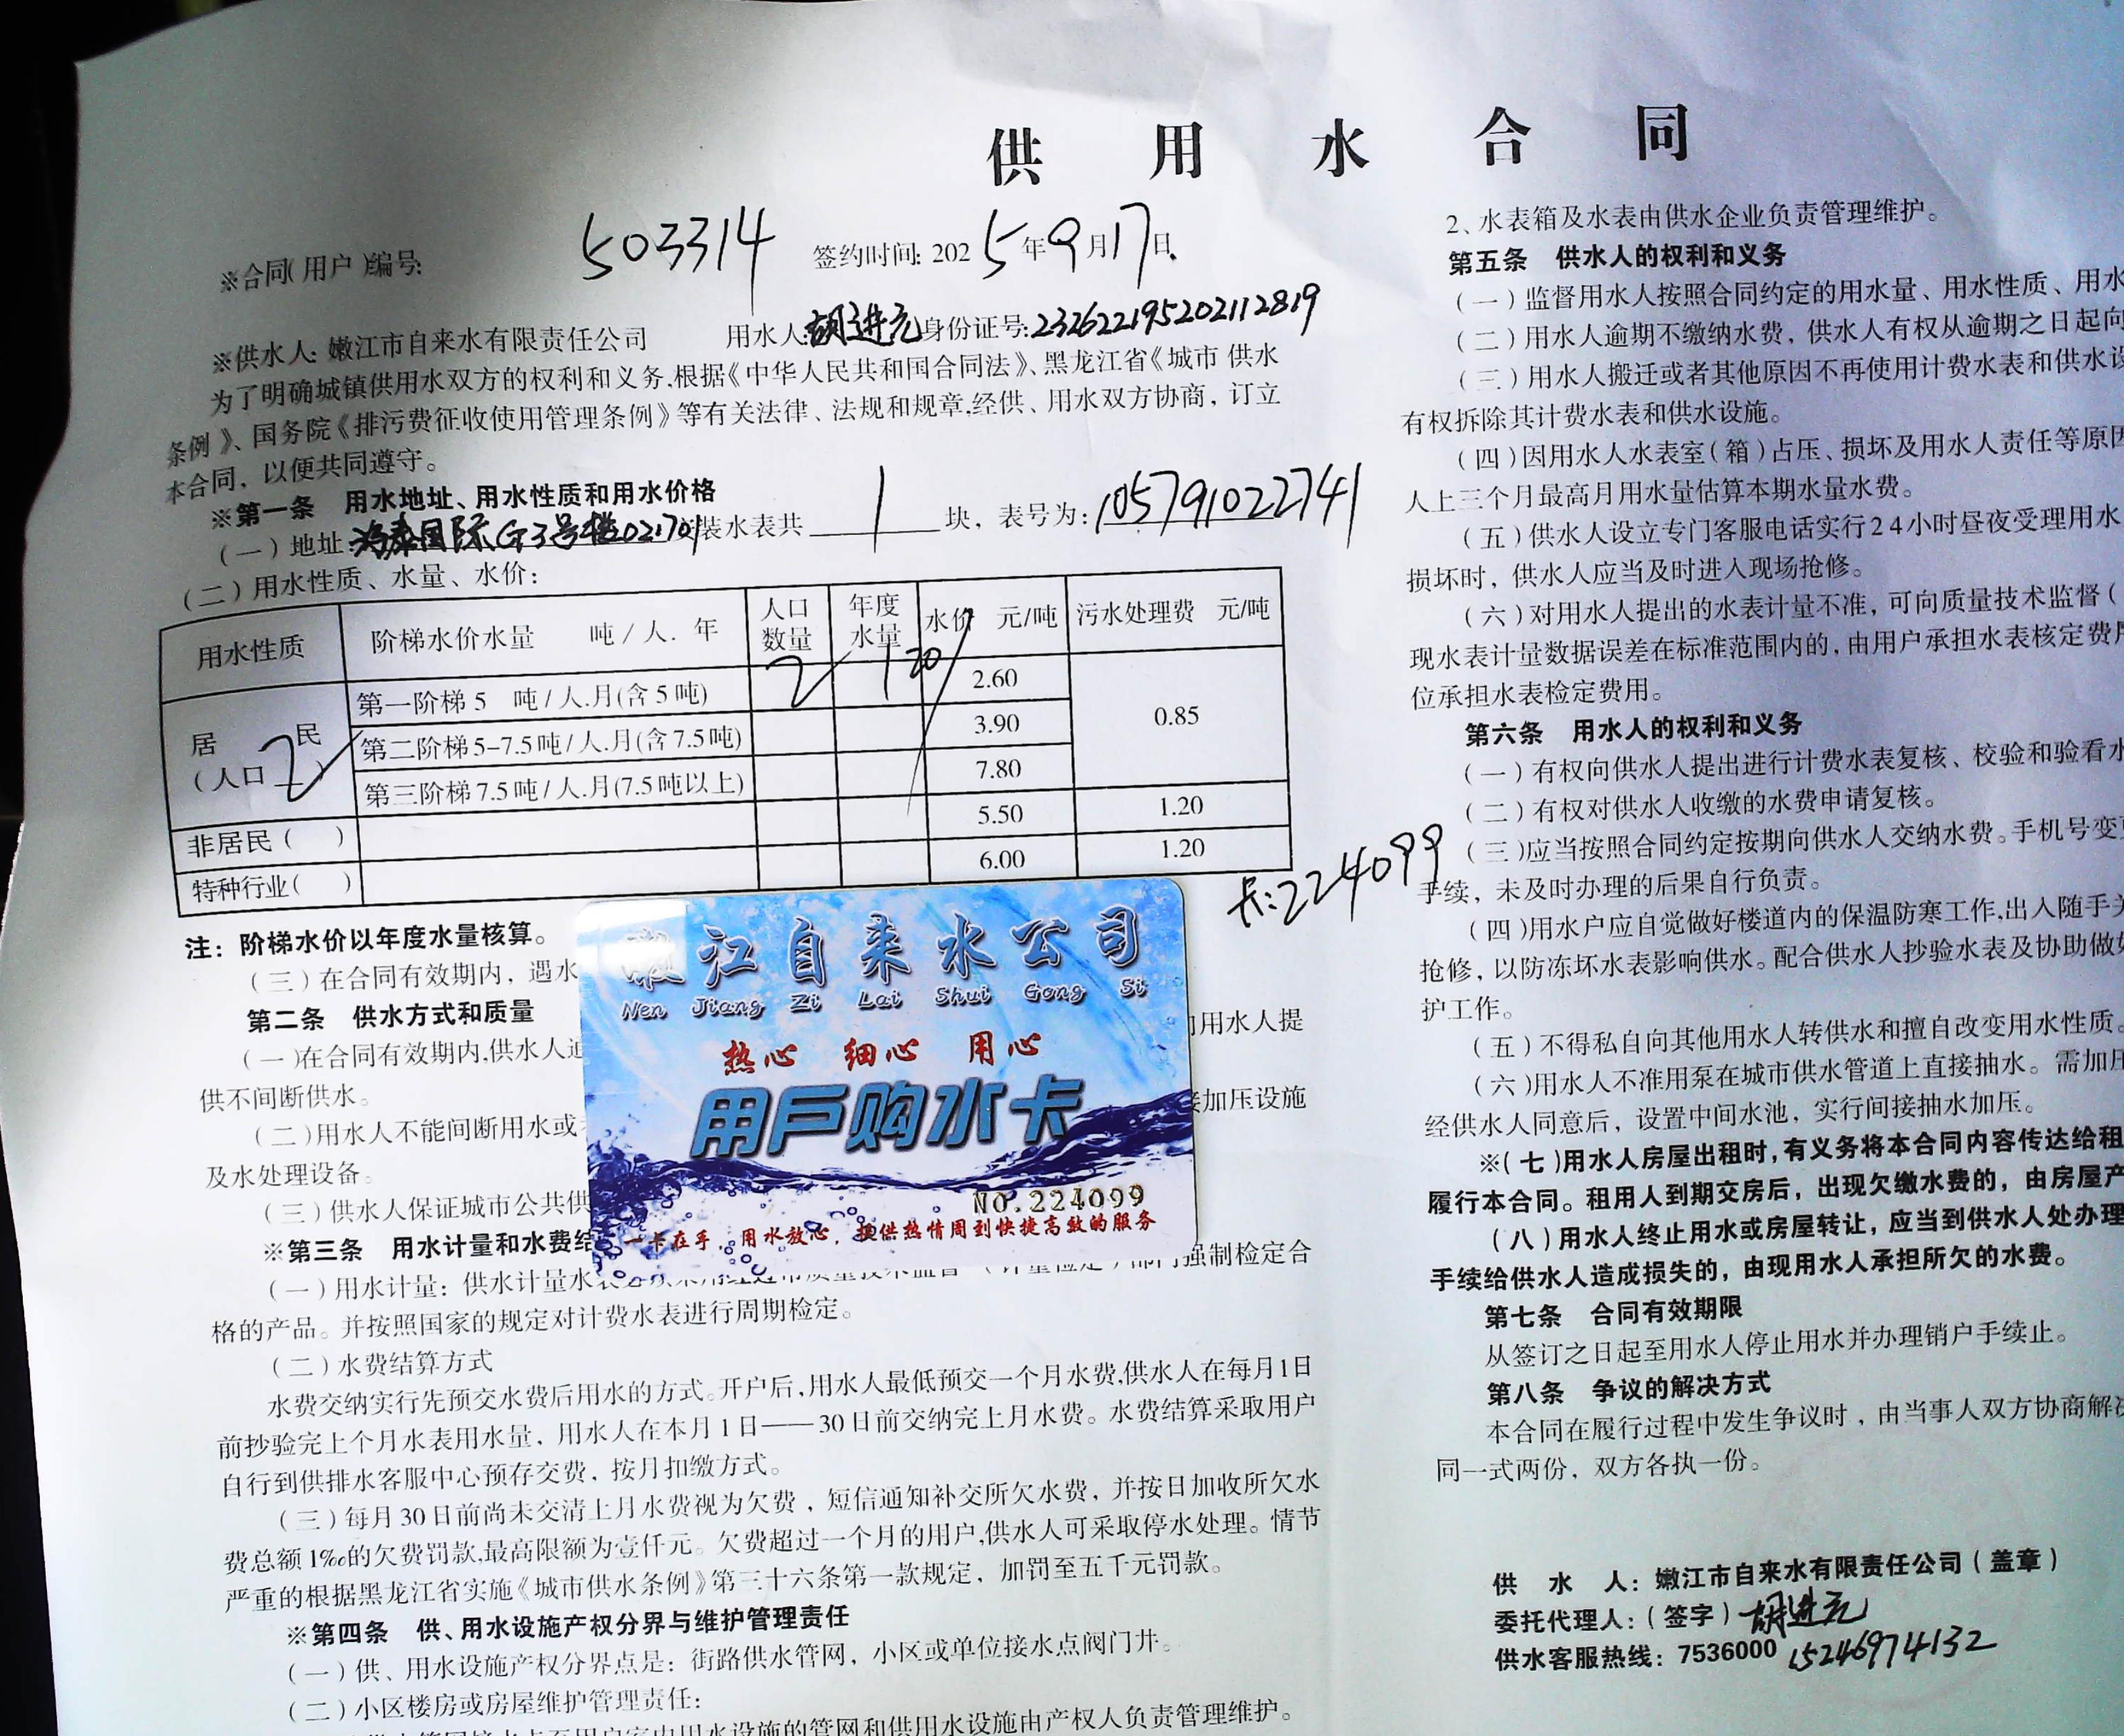 供 用 水 合 同
※合同(用户)编号: 503314 签约时间: 2025年9月17日
※供水人: 嫩江市自来水有限责任公司 用水人:胡进元 身份证号:232622195202112819
为了明确城镇供用水双方的权利和义务,根据《中华人民共和国合同法》、黑龙江省《城市 供水
条例》、国务院《排污费征收使用管理条例》等有关法律、法规和规章,经供、用水双方协商，订立
本合同，以便共同遵守。
※第一条 用水地址、用水性质和用水价格
(一)地址:鸿泰国际G3号楼021701装水表共 1 块，表号为:105791022741
(二)用水性质、水量、水价:
用水性质 阶梯水价水量 吨/人.年 人口数量 年度水量 水价 元/吨 污水处理费 元/吨
居 民 (人口 2 ) 第一阶梯 5 吨/人.月(含5吨) 2 120 2.60 0.85
第二阶梯5-7.5吨/人.月(含7.5吨) 3.90
第三阶梯7.5吨/人.月(7.5吨以上) 7.80
非居民( ) 5.50 1.20
特种行业( ) 6.00 1.20
卡:224099
注：阶梯水价以年度水量核算。
(三)在合同有效期内，遇水
第二条 供水方式和质量
(一)在合同有效期内,供水人
用水人提
供不间断供水。
(二)用水人不能间断用水或
加压设施
及水处理设备。
(三)供水人保证城市公共供
※第三条 用水计量和水费结
(一)用水计量：供水计量水
强制检定合
格的产品。并按照国家的规定对计费水表进行周期检定。
(二)水费结算方式
水费交纳实行先预交水费后用水的方式。开户后,用水人最低预交一个月水费,供水人在每月1日
前抄验完上个月水表用水量，用水人在本月1日——30日前交纳完上月水费。水费结算采取用户
自行到供排水客服中心预存交费，按月扣缴方式。
(三)每月30日前尚未交清上月水费视为欠费，短信通知补交所欠水费，并按日加收所欠水
费总额1‰的欠费罚款,最高限额为壹仟元。欠费超过一个月的用户,供水人可采取停水处理。情节
严重的根据黑龙江省实施《城市供水条例》第三十六条第一款规定，加罚至五千元罚款。
※第四条 供、用水设施产权分界与维护管理责任
(一)供、用水设施产权分界点是：街路供水管网，小区或单位接水点阀门井。
(二)小区楼房或房屋维护管理责任:
用水设施的管网和供用水设施由产权人负责管理维护。
嫩江自来水公司
Nen Jiang Zi Lai Shui Gong Si
热心 细心 用心
用戶购水卡
NO.224099
一卡在手，用水放心，提供热情周到快捷高效的服务
2、水表箱及水表由供水企业负责管理维护。
第五条 供水人的权利和义务
(一)监督用水人按照合同约定的用水量、用水性质、用水
(二)用水人逾期不缴纳水费，供水人有权从逾期之日起向
(三)用水人搬迁或者其他原因不再使用计费水表和供水设
有权拆除其计费水表和供水设施。
(四)因用水人水表室(箱)占压、损坏及用水人责任等原因
人上三个月最高月用水量估算本期水量水费。
(五)供水人设立专门客服电话实行24小时昼夜受理用水
损坏时，供水人应当及时进入现场抢修。
(六)对用水人提出的水表计量不准，可向质量技术监督(
现水表计量数据误差在标准范围内的,由用户承担水表核定费用
位承担水表检定费用。
第六条 用水人的权利和义务
(一)有权向供水人提出进行计费水表复核、校验和验看水
(二)有权对供水人收缴的水费申请复核。
(三)应当按照合同约定按期向供水人交纳水费。手机号变更
手续，未及时办理的后果自行负责。
(四)用水户应自觉做好楼道内的保温防寒工作,出入随手关
抢修，以防冻坏水表影响供水。配合供水人抄验水表及协助做好
护工作。
(五)不得私自向其他用水人转供水和擅自改变用水性质。
(六)用水人不准用泵在城市供水管道上直接抽水。需加压
经供水人同意后，设置中间水池，实行间接抽水加压。
※(七)用水人房屋出租时,有义务将本合同内容传达给租
履行本合同。租用人到期交房后，出现欠缴水费的，由房屋产
(八)用水人终止用水或房屋转让，应当到供水人处办理
手续给供水人造成损失的，由现用水人承担所欠的水费。
第七条 合同有效期限
从签订之日起至用水人停止用水并办理销户手续止。
第八条 争议的解决方式
本合同在履行过程中发生争议时，由当事人双方协商解决
同一式两份，双方各执一份。
供 水 人：嫩江市自来水有限责任公司(盖章)
委托代理人：(签字)胡进元
供水客服热线：7536000 15246974132